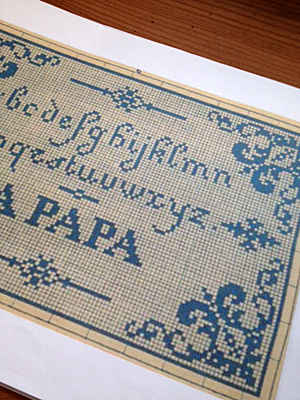 bcdefghijklmn
qrstuvwxyz.
A PAPA